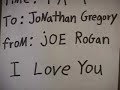 To: JoNathan Gregory
froM: JOE RoGan
I Love You